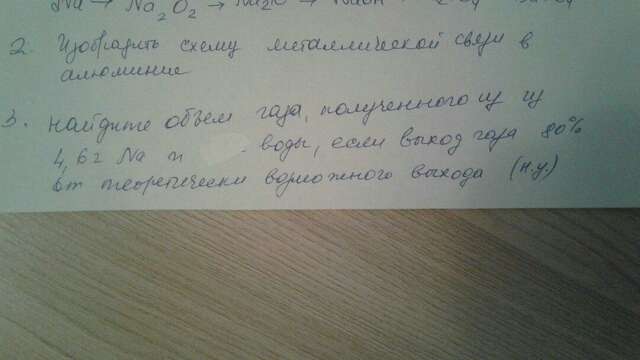 Na → Na2O2 → Na2O → NaOH
2. Изобразить схему металлической связи в
алюминие
3. Найдите объем газа, полученного из из
4,6г Na и воды, если выход газа 80%
от теоретически возможного выхода (н.у.)